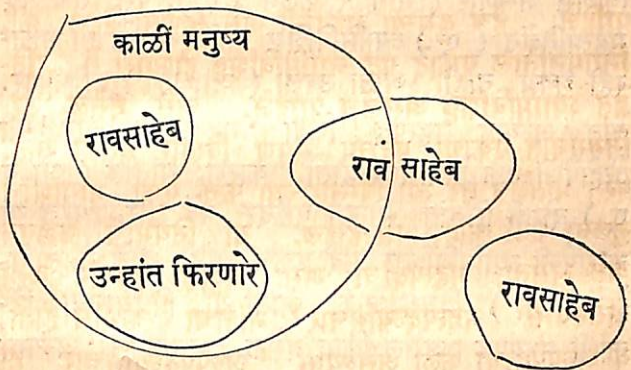 काळीं मनुष्य
रावसाहेब
रावं साहेब
उन्हांत फिरणोरे
रावसाहेब